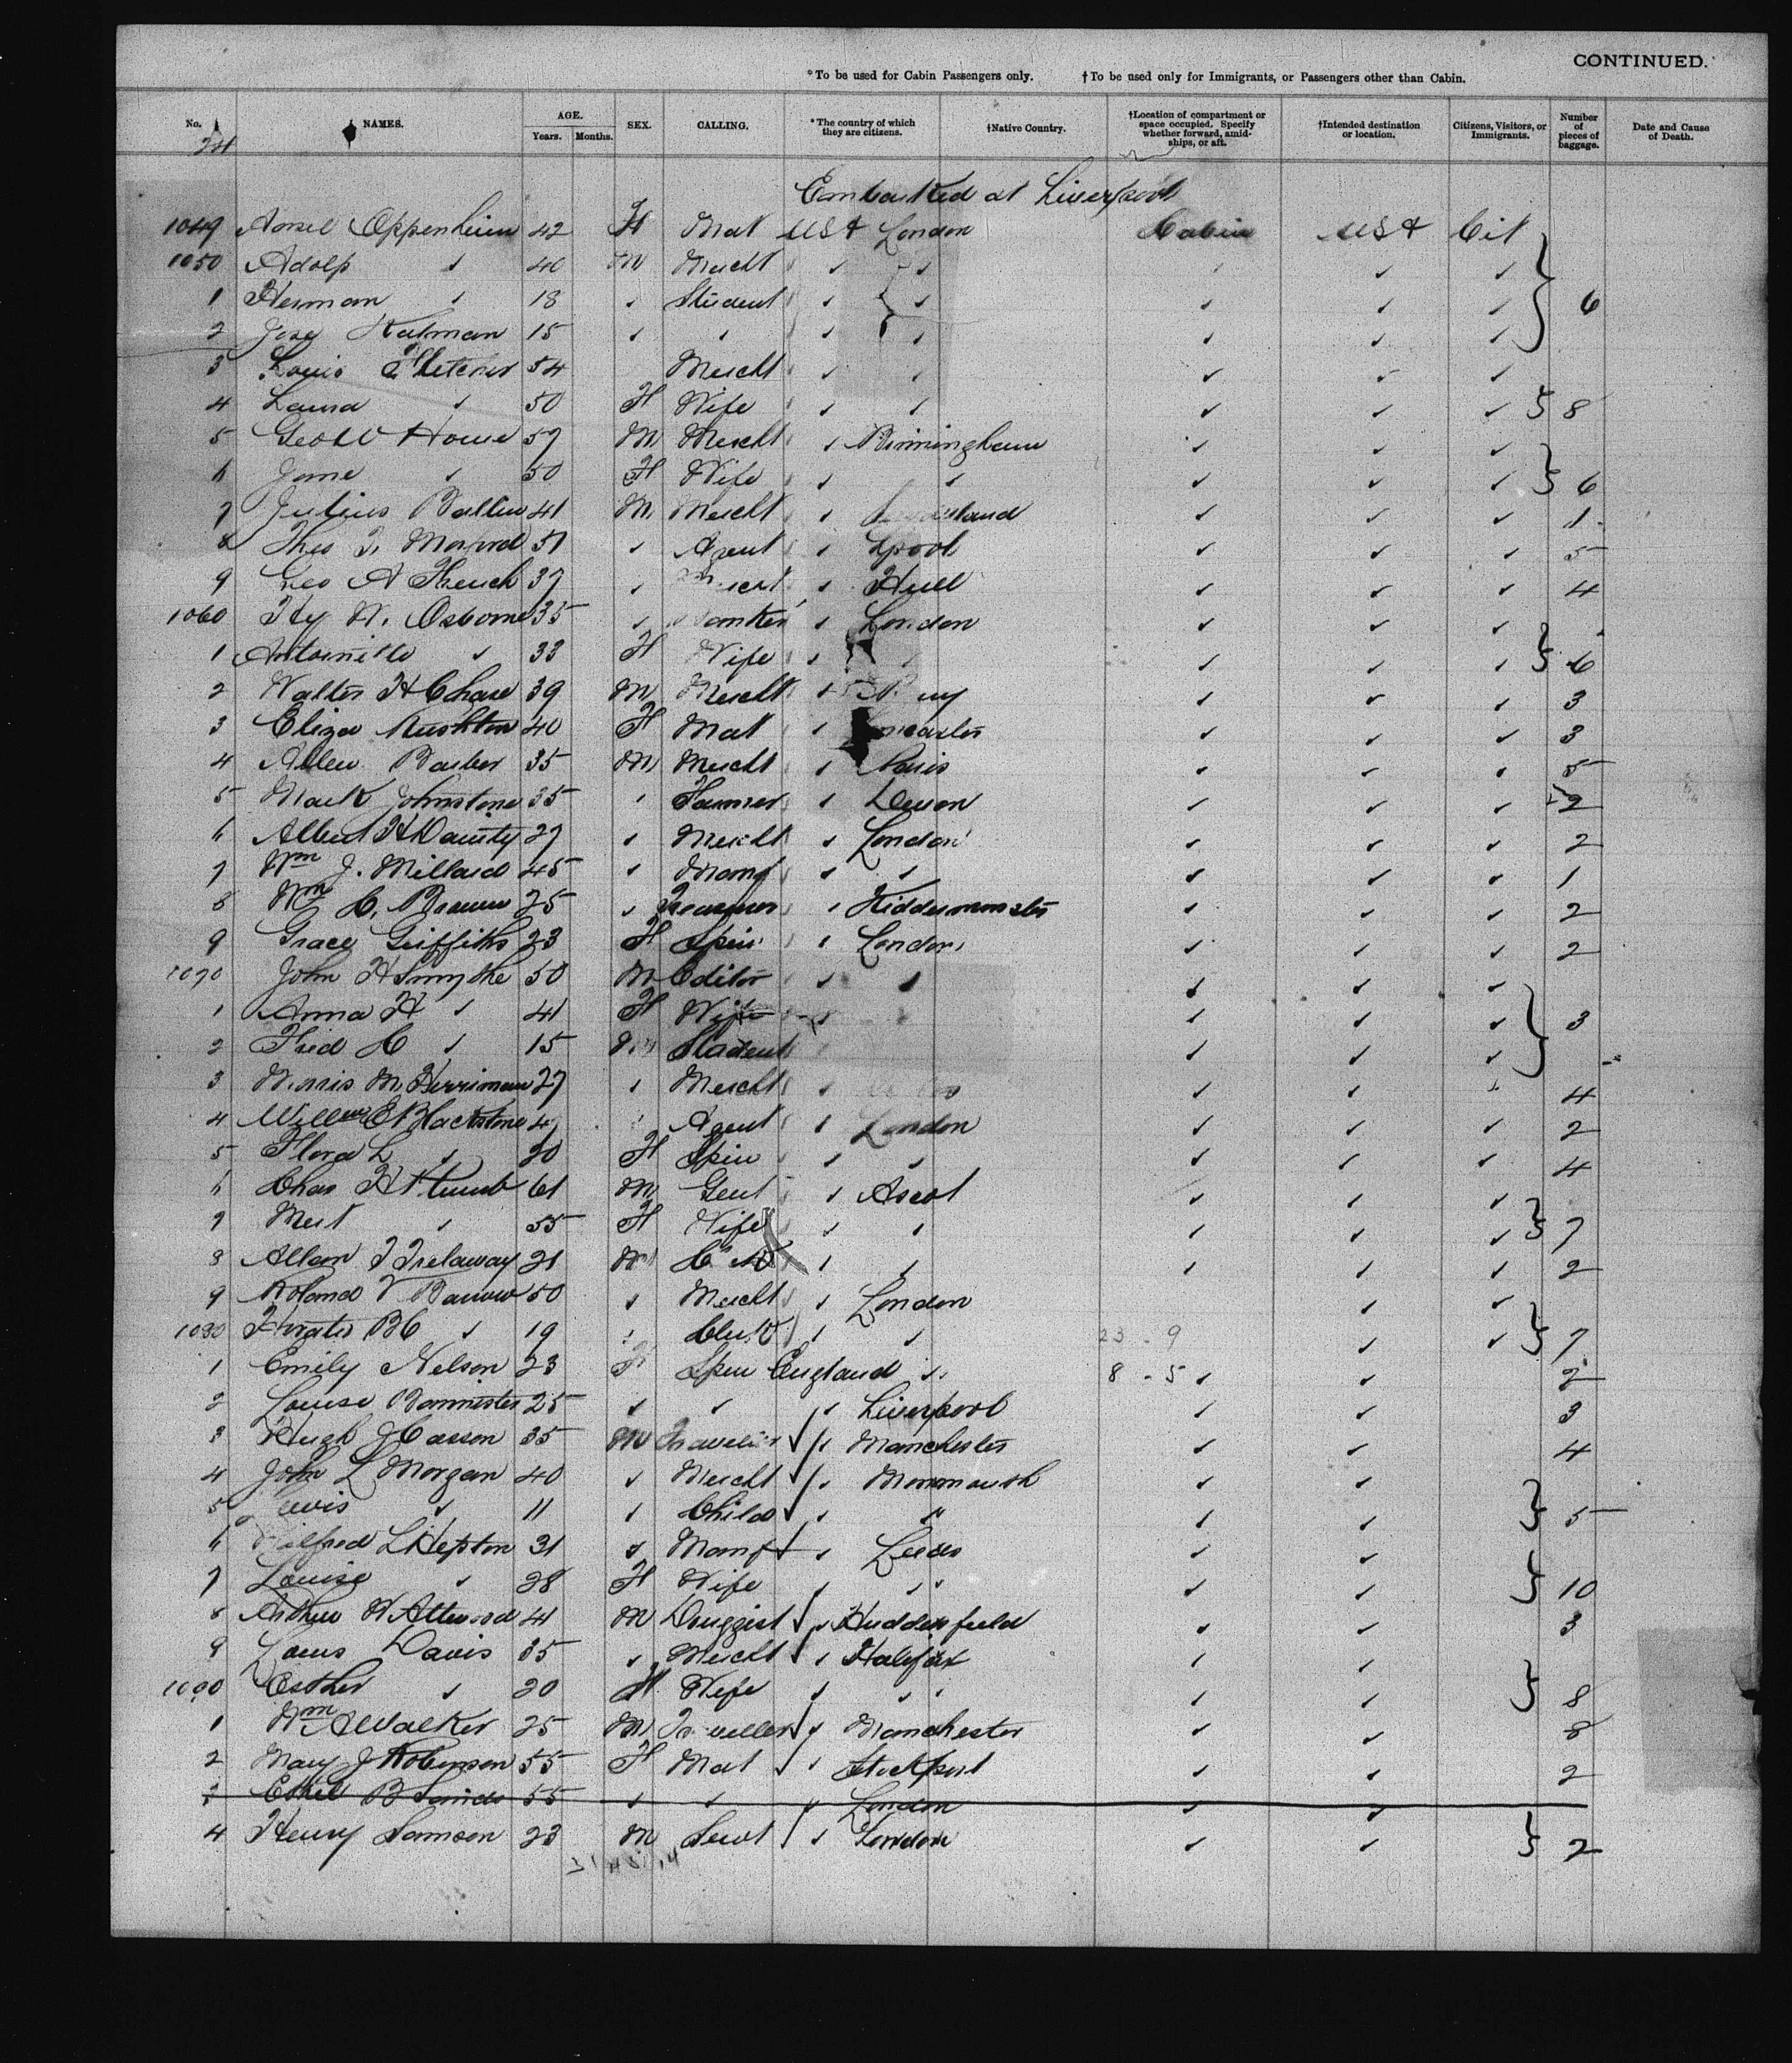 CONTINUED.
*To be used for Cabin Passengers only. †To be used only for Immigrants, or Passengers other than Cabin.
No. NAMES. AGE. Years. Months. SEX. CALLING. *The country of which they are citizens. †Native Country. †Location of compartment or space occupied. Specify whether forward, amidships, or aft. †Intended destination or location. Citizens, Visitors, or Immigrants. Number of pieces of baggage. Date and Cause of Death.
Embarked at Liverpool
1049 Oppenheim 42 F Mat USA London Cabin USA Cit
1050 Adolp ✓ 40 M Mercht ✓ ✓ ✓ ✓
1 Herman ✓ 18 ✓ Student ✓ ✓ ✓ ✓ ✓ 6
2 Kalman 15 ✓ ✓ ✓ ✓ ✓ ✓ ✓
3 Louis 54 Mercht ✓ ✓ ✓ ✓ ✓
4 Laura ✓ 50 F Wife ✓ ✓ ✓ ✓ ✓ 8
5 Geo W Howe 57 M Mercht ✓ Birmingham ✓ ✓ ✓
6 Jane ✓ 50 F Wife ✓ ✓ ✓ ✓ ✓ 6
7 Julius Ballin 41 M Mercht ✓ ✓ ✓ ✓ 1
8 51 ✓ Agent ✓ Lpool ✓ ✓ ✓ 5
9 Geo A French 37 ✓ ✓ Hull ✓ ✓ ✓ 4
1060 Hy W. Osborne 35 ✓ ✓ London ✓ ✓ ✓
1 ✓ 33 F Wife ✓ ✓ ✓ ✓ 6
2 Walter H Chase 39 M Mercht ✓ ✓ ✓ ✓ 3
3 Eliza Rushton 40 F Mat ✓ ✓ ✓ ✓ 3
4 Allen Barber 35 M Mercht ✓ Paris ✓ ✓ ✓ 5
5 Mark Johnstone 35 ✓ Farmer ✓ Devon ✓ ✓ ✓ 2
6 Albert H Dainty 27 ✓ Mercht ✓ London ✓ ✓ ✓ 2
7 Wm J. Millard 45 ✓ Manf ✓ ✓ ✓ ✓ ✓ 1
8 Wm C. 25 ✓ ✓ Kidderminster ✓ ✓ ✓ 2
9 Grace Griffiths 23 F Spin ✓ London ✓ ✓ ✓ 2
1070 John H Smythe 50 M Editor ✓ ✓ ✓ ✓ ✓
1 Anna H ✓ 41 F Wife ✓ ✓ ✓ ✓ 3
2 Fred C ✓ 15 Student ✓ ✓ ✓
3 M. Herriman 27 ✓ Mercht ✓ ✓ ✓ 4
4 E Blackstone Agent ✓ London ✓ ✓ ✓ 2
5 Flora L ✓ 20 F Spin ✓ ✓ ✓ ✓ ✓ 4
6 Chas H Plumb 61 M Gent ✓ Ascot ✓ ✓ ✓
7 ✓ 55 F Wife ✓ ✓ ✓ ✓ ✓ 7
8 Allan T Trelaway 21 M ✓ ✓ ✓ ✓ ✓ 2
9 Roland V 50 ✓ Mercht ✓ London ✓ ✓
1080 ✓ 19 Clerk ✓ ✓ 23 - 9 ✓ ✓ 7
1 Emily Nelson 23 F Spin England ✓ 8 - 5 ✓ ✓ 2
2 Louise Bannister 25 ✓ ✓ ✓ Liverpool ✓ ✓ 3
3 Hugh Casson 35 M ✓ Manchester ✓ ✓ 4
4 John L Morgan 40 ✓ Mercht ✓ Monmouth ✓ ✓
5 Lewis ✓ 11 ✓ Child ✓ ✓ ✓ ✓ 5
6 Wilfred L Hepton 31 ✓ Manf ✓ Leeds ✓ ✓
7 Louise ✓ 28 F Wife ✓ ✓ ✓ ✓ 10
8 Arthur W Attwood 41 M Druggist ✓ Huddersfield ✓ ✓ 3
9 Louis Davis 35 ✓ Mercht ✓ Halifax ✓ ✓
1090 Esther ✓ 20 F Wife ✓ ✓ ✓ ✓ 8
1 Wm A Walker 25 M Traveller ✓ Manchester ✓ ✓ 8
2 Mary J Robinson 55 F Mat ✓ Stockport ✓ ✓ 2
3 Ethel B 55 ✓ ✓ ✓ London ✓ ✓
4 Henry Samson 23 M Servt ✓ London ✓ ✓ 2